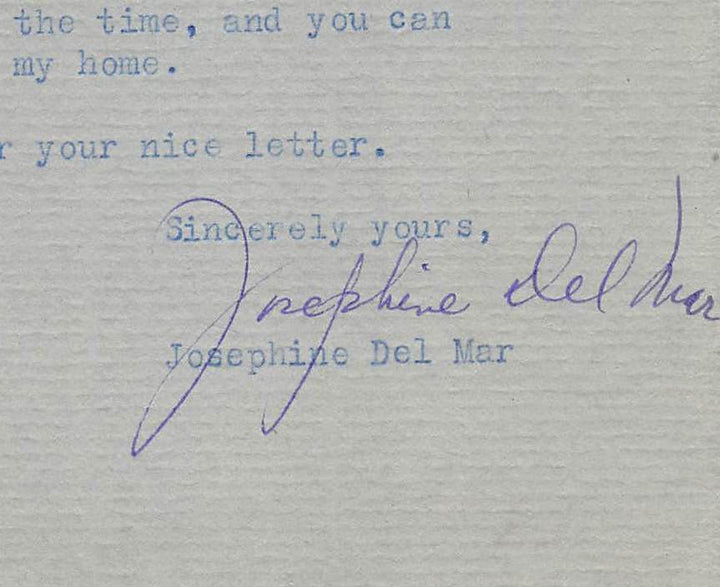 the time, and you can
my home.
r your nice letter.
Sincerely yours,
Josephine Del Mar
Josephine Del Mar